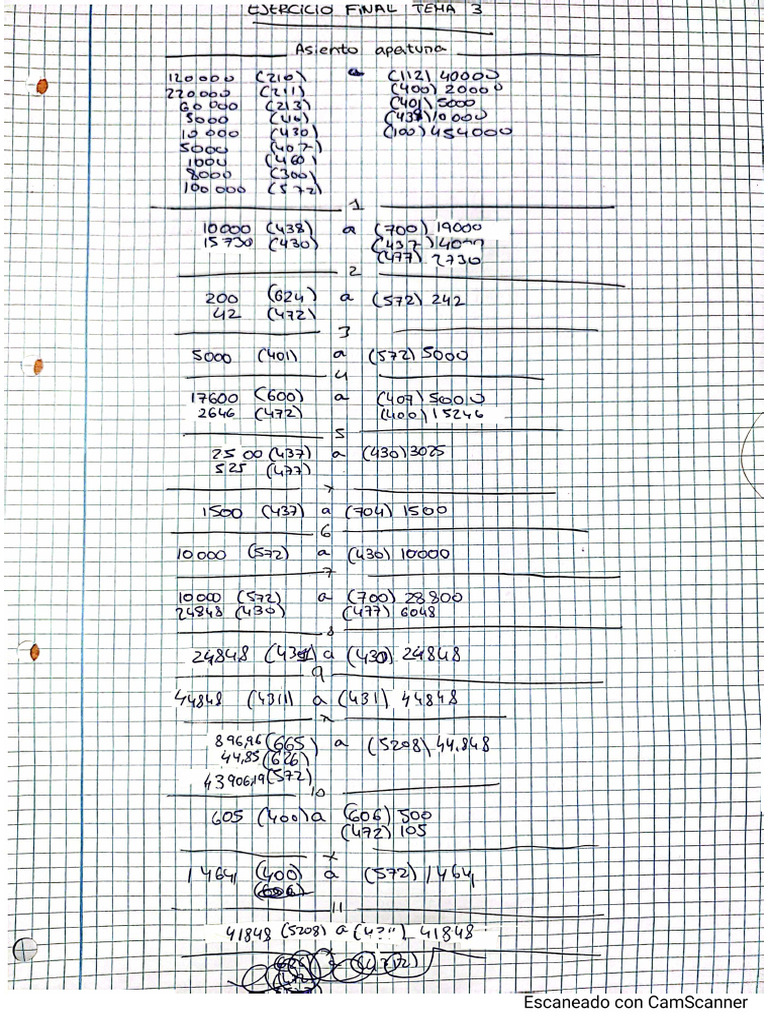 EJERCICIO FINAL TEMA 3
Asiento apertura
120000 (210) a (112) 40000
220000 (211) (400) 20000
60000 (213) (401) 5000
5000 (438) 10000
10000 (430) (100) 454000
5000 (407)
1000 (460)
8000 (300)
100000 (572)
1
10000 (438) a (700) 19000
15730 (430) (437) 4000
(477) 2730
2
200 (624) a (572) 242
42 (472)
3
5000 (401) a (572) 5000
4
17600 (600) a (407) 5000
2646 (472) (400) 15246
5
2500 (437) a (430) 3025
525 (477)
x
1500 (437) a (704) 1500
6
10000 (572) a (430) 10000
7
10000 (572) a (700) 28800
24848 (430) (477) 6048
8
24848 (431) a (430) 24848
9
44848 (4311) a (431) 44848
x
896,96 (665) a (5208) 44.848
44,85 (626)
43906,19 (572)
10
605 (400) a (606) 500
(472) 105
x
1464 (400) a (572) 1464
11
41848 (5208) a 41848
Escaneado con CamScanner